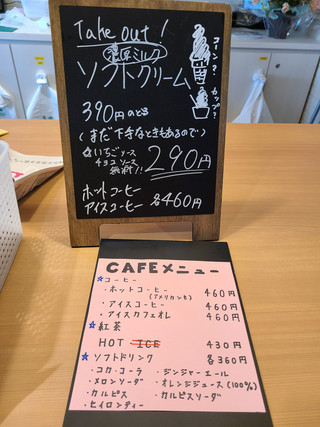 Take out!
濃厚ミルク
ソフトクリーム
コーン?カップ?
390円のところ
(まだ下手なときもあるので)
☆いちごソース
チョコソース
無料!!
290円
ホットコーヒー
アイスコーヒー 各460円
CAFEメニュー
☆コーヒー
・ホットコーヒー 460円
(アメリカンも)
・アイスコーヒー 460円
・アイスカフェオレ 460円
☆紅茶
HOT ICE 430円
☆ソフトドリンク 各360円
・コカ・コーラ ・ジンジャーエール
・メロンソーダ ・オレンジジュース(100%)
・カルピス ・カルピスソーダ
・セイロンティー